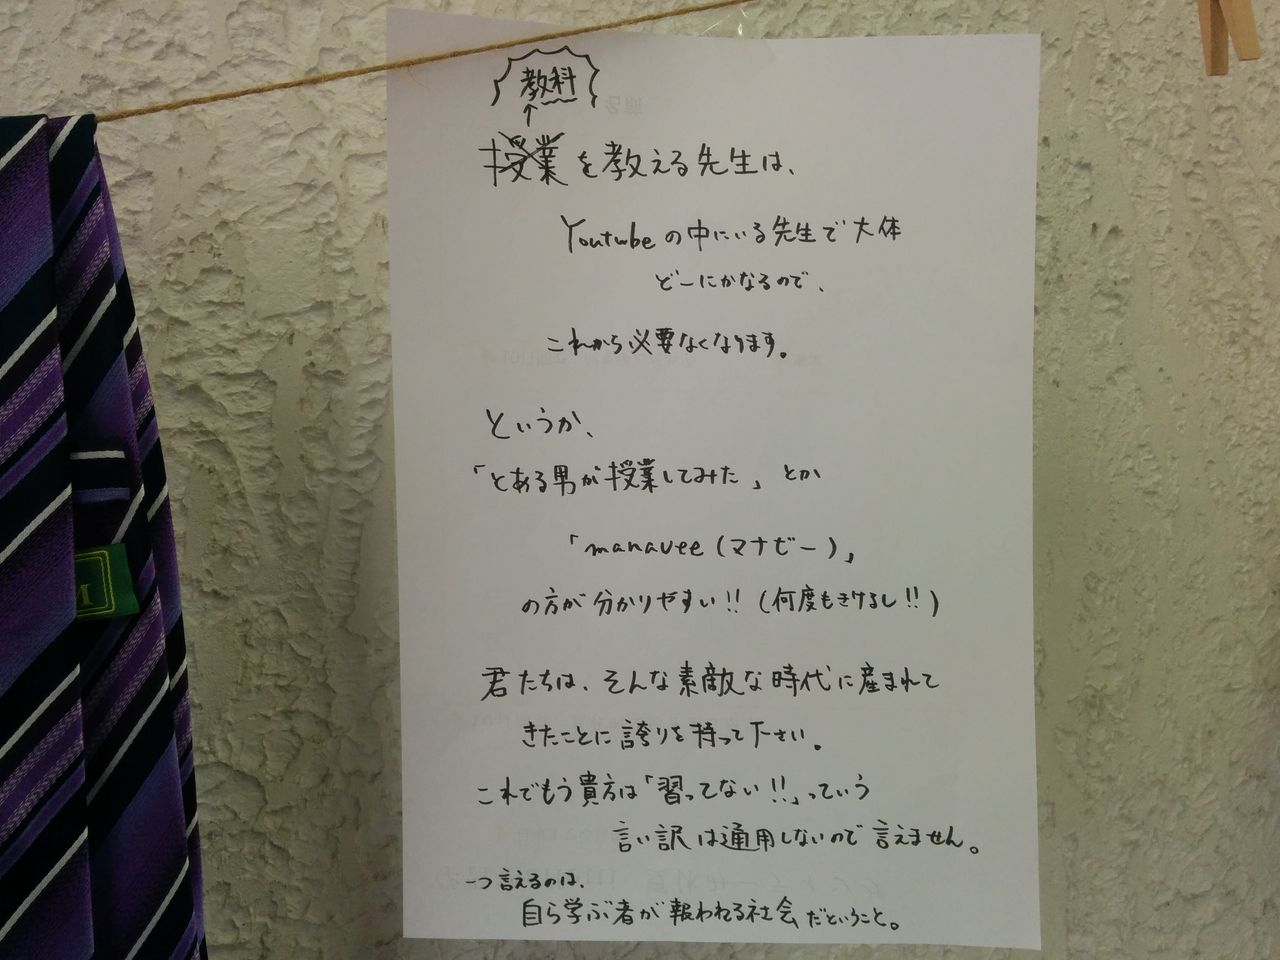 教科
↑
授業を教える先生は、
Youtubeの中にいる先生で大体
どーにかなるので、
これから必要なくなります。
というか、
「とある男が授業してみた」とか
「manavee(マナビー)」
の方が分かりやすい!!(何度もきけるし!!)
君たちは、そんな素敵な時代に産まれて
きたことに誇りを持って下さい。
これでもう貴方は「習ってない!!」っていう
言い訳は通用しないので言えません。
一つ言えるのは、
自ら学ぶ者が報われる社会だということ。
M